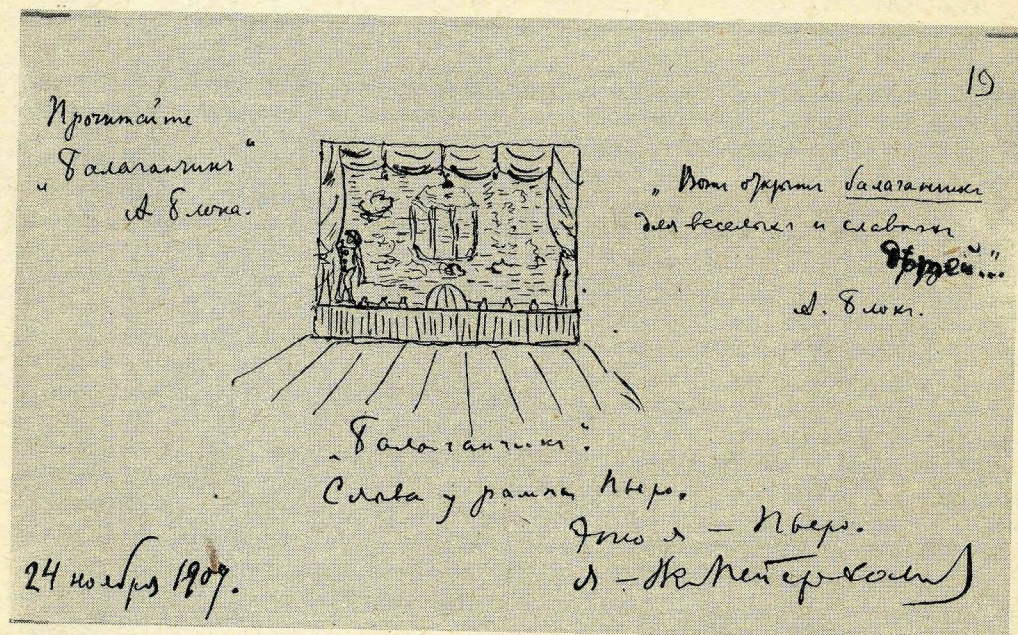 19
Прочитайте
„Балаганчикъ“
А. Блока.
„Вотъ открытъ балаганчикъ
для веселыхъ и славныхъ
А. Блокъ.
„Балаганчикъ“.
Слѣва у рампы Пьеро.
Это я — Пьеро.
Я — Вс. Мейерхольд
24 ноября 1909.